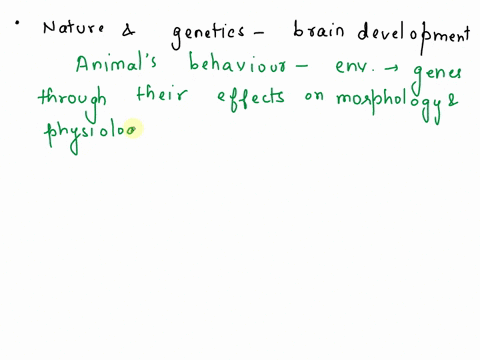 • Nature & genetics - brain development
Animal's behaviour - env. → genes
through their effects on morphology &
physiolo